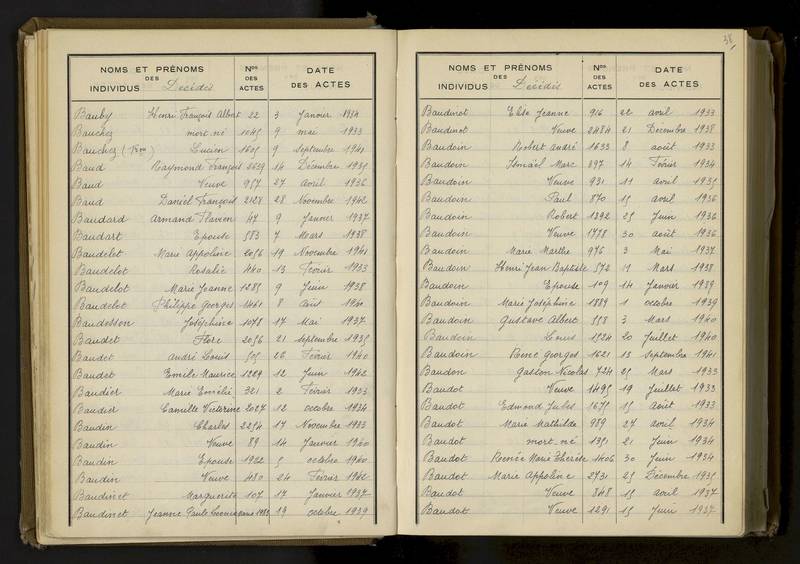 NOMS ET PRÉNOMS DES INDIVIDUS Décédés Nos DES ACTES DATE DES ACTES
Bauby Henri François Albert 22 3 Janvier 1934
Bauchez mort né 1045 9 mai 1933
Bauchez Lucien 9 Septembre 1941
Baud Raymond François 14 Décembre 1935
Baud Veuve 957 27 avril 1936
Baud Daniel François 2128 28 Novembre 1942
Baudard Armand Flavien 47 9 Janvier 1937
Baudart Epouse 583 7 Mars 1938
Baudelet Marie Appoline 2056 19 Novembre 1941
Baudelot Rosalie 440 13 Février 1933
Baudelot Marie Jeanne 1285 9 Juin 1938
Baudelot Philippe Georges 8 août 1940
Baudesson Joséphine 1078 17 Mai 1937
Baudet Flore 2056 21 septembre 1935
Baudet andré Louis 505 26 Février 1940
Baudet Emile Maurice 1229 12 Juin 1942
Baudier Marie Emélie 321 2 Février 1933
Baudier Camille Victorine 2027 12 octobre 1934
Baudin Charles 2254 17 Novembre 1933
Baudin Veuve 89 14 Janvier 1940
Baudin Epouse 1922 5 octobre 1940
Baudin Veuve 480 24 Février 1942
Baudinet Marguerite 107 17 Janvier 1937
Baudinet Jeanne Paule 19 octobre 1939
38
NOMS ET PRÉNOMS DES INDIVIDUS Décédés Nos DES ACTES DATE DES ACTES
Baudinot Elise Jeanne 916 22 avril 1933
Baudinot Veuve 2484 21 Décembre 1938
Baudoin Robert andré 1633 8 août 1933
Baudoin Ismaël Marc 397 14 Février 1934
Baudoin Veuve 931 11 avril 1935
Baudoin Paul 870 15 avril 1936
Baudoin Robert 1392 25 Juin 1936
Baudoin Veuve 1788 30 août 1936
Baudoin Marie Marthe 976 3 Mai 1937
Baudoin Henri Jean Baptiste 572 11 Mars 1938
Baudoin Epouse 109 14 Janvier 1939
Baudoin Marie Joséphine 1889 1 octobre 1939
Baudoin Gustave Albert 558 3 Mars 1940
Baudoin Louis 1524 20 Juillet 1940
Baudoin René Georges 1621 13 septembre 1941
Baudon Gaston Nicolas 734 25 Mars 1933
Baudot Veuve 1495 19 Juillet 1933
Baudot Edmond Jules 1675 15 Août 1933
Baudot Marie Mathilde 989 27 avril 1934
Baudot mort né 1351 21 Juin 1934
Baudot Renée Marie Thérèse 1406 30 Juin 1934
Baudot Marie Appoline 2731 25 Décembre 1935
Baudot Veuve 848 15 avril 1937
Baudot Veuve 1291 15 Juin 1937